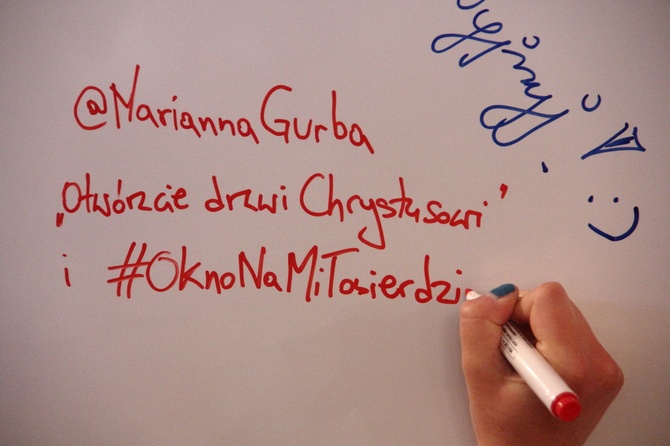 @MariannaGurba
„Otwórzcie drzwi Chrystusowi”
i #OknoNaMiłosierdzi